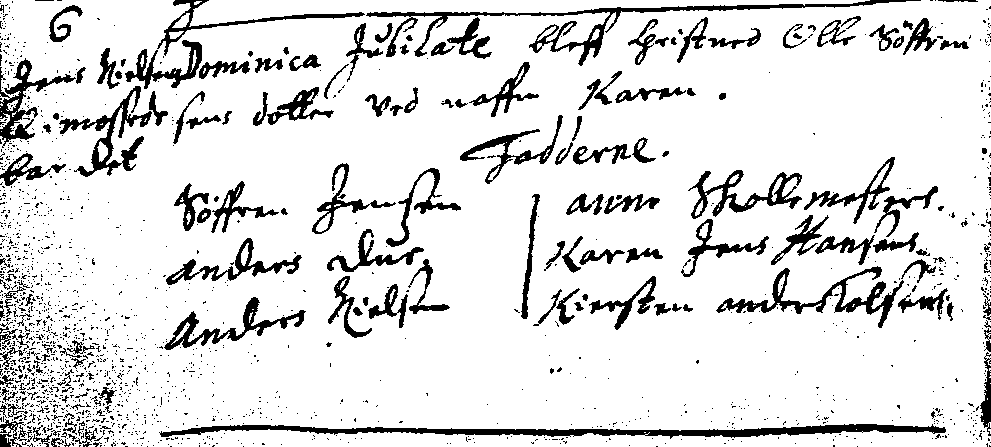 6
Jens Nielsen Dominica Jubilate bleff Christned Olle Söffren
sens dotter ved naffn Karen.
bar det
Fadderne.
Söffren Jensen | anne Skollemesters.
anders Due. | Karen Jens Hansens.
Anders Nielsen | Kiersten anders Tolsens.